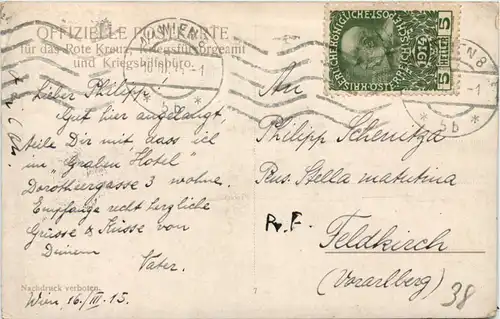 OFFIZIELLE POSTKARTE
für das Rote Kreuz, Kriegsfürsorgeamt
und Kriegshilfsbüro.
WIEN
5b
5 HELLER 5
1916
Lieber Philipp!
Gut hier angelangt,
teile Dir mit dass ich
im "Graben Hotel"
Dorotheergasse 3 wohne.
Empfange recht herzliche
Grüsse & Küsse von
Deinem
Vater.
Nachdruck verboten.
Wien 16./III. 15.
7
An
Philipp Schenitza
Pens. Stella matutina
R. F.
Feldkirch
(Vorarlberg)
38